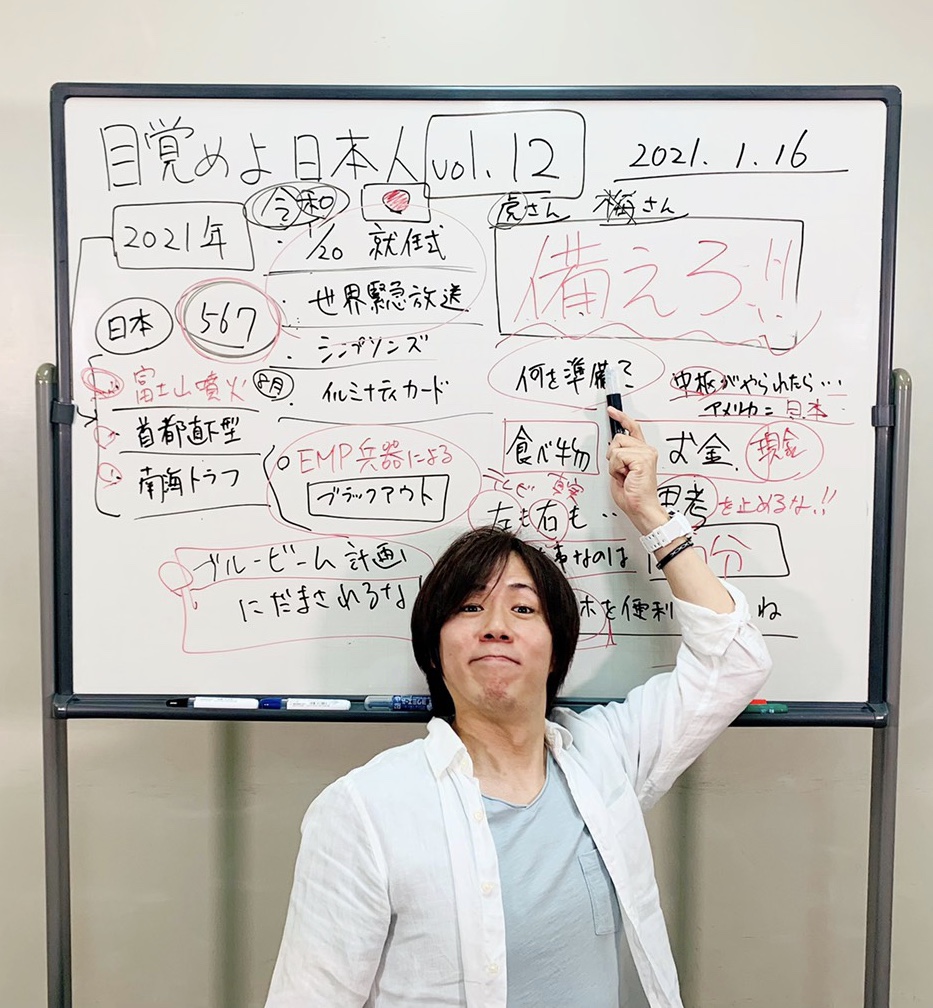 目覚めよ日本人 vol.12
2021.1.16
令和
虎さん 梅さん
2021年
1/20 就任式
備えろ!!
世界緊急放送
日本
567
シンプソンズ
何を準備
富士山噴火
8月
イルミナティカード
中枢がやられたら…
アメリカ=日本
首都直下型
EMP兵器による
ブラックアウト
食べ物
お金 現金
南海トラフ
真実
左も右も…
思考を止めるな!!
ブルービーム計画
にだまされるな
事なのは
分
ホを便利
ね